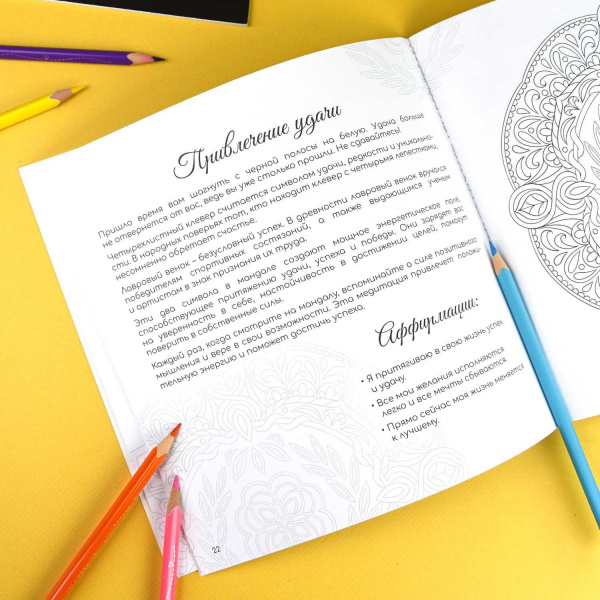 Привлечение удачи
Пришло время вам шагнуть с черной полосы на белую. Удача больше
не отвернется от вас, ведь вы уже столько прошли. Не сдавайтесь!
Четырехлистный клевер считается символом удачи, редкости и уникально-
сти. В народных поверьях тот, кто находит клевер с четырьмя лепестками,
несомненно обретает счастье.
Лавровый венок – безусловный успех. В древности лавровый венок вручался
победителям спортивных состязаний, а также выдающимся ученым
и артистам в знак признания их труда.
Эти два символа в мандале создают мощное энергетическое поле,
способствующее притяжению удачи, успеха и победы. Они зарядят вас
на уверенность в себе, настойчивость в достижении целей, помогут
поверить в собственные силы.
Каждый раз, когда смотрите на мандалу, вспоминайте о силе позитивного
мышления и вере в свои возможности. Эта медитация привлечет положи-
тельную энергию и поможет достичь успеха.
Аффирмации:
• Я притягиваю в свою жизнь успех
и удачу.
• Все мои желания исполняются
легко и все мечты сбываются.
• Прямо сейчас моя жизнь меняется
к лучшему.
22